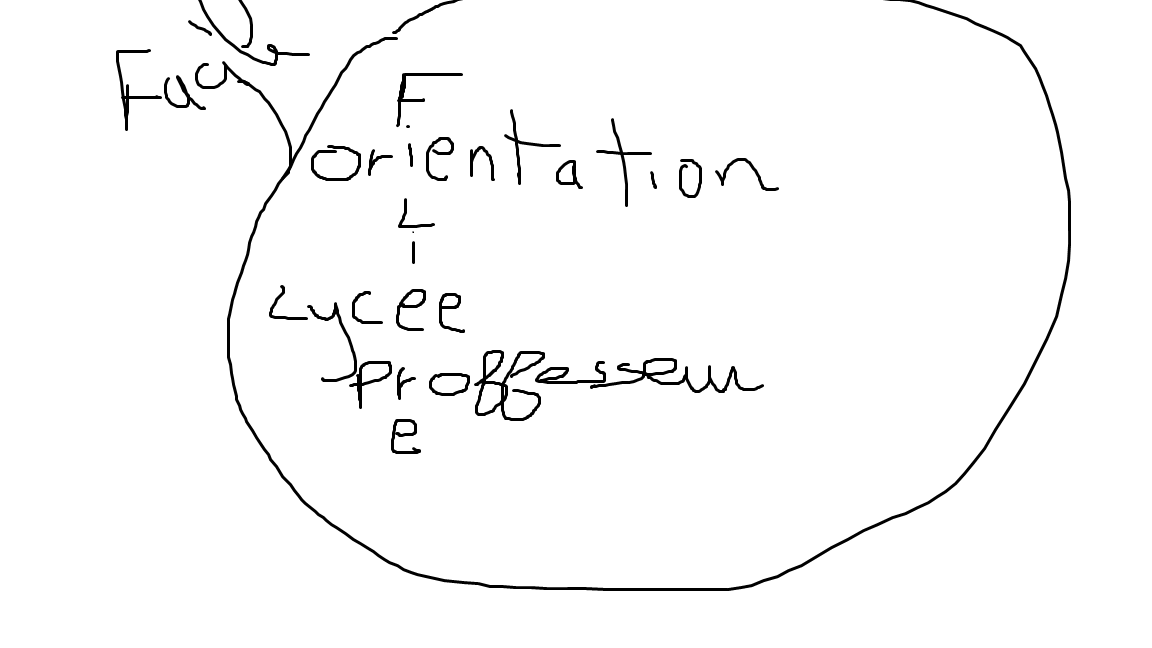 Facile
F
orientation
L
i
Lycee
proffesseur
e